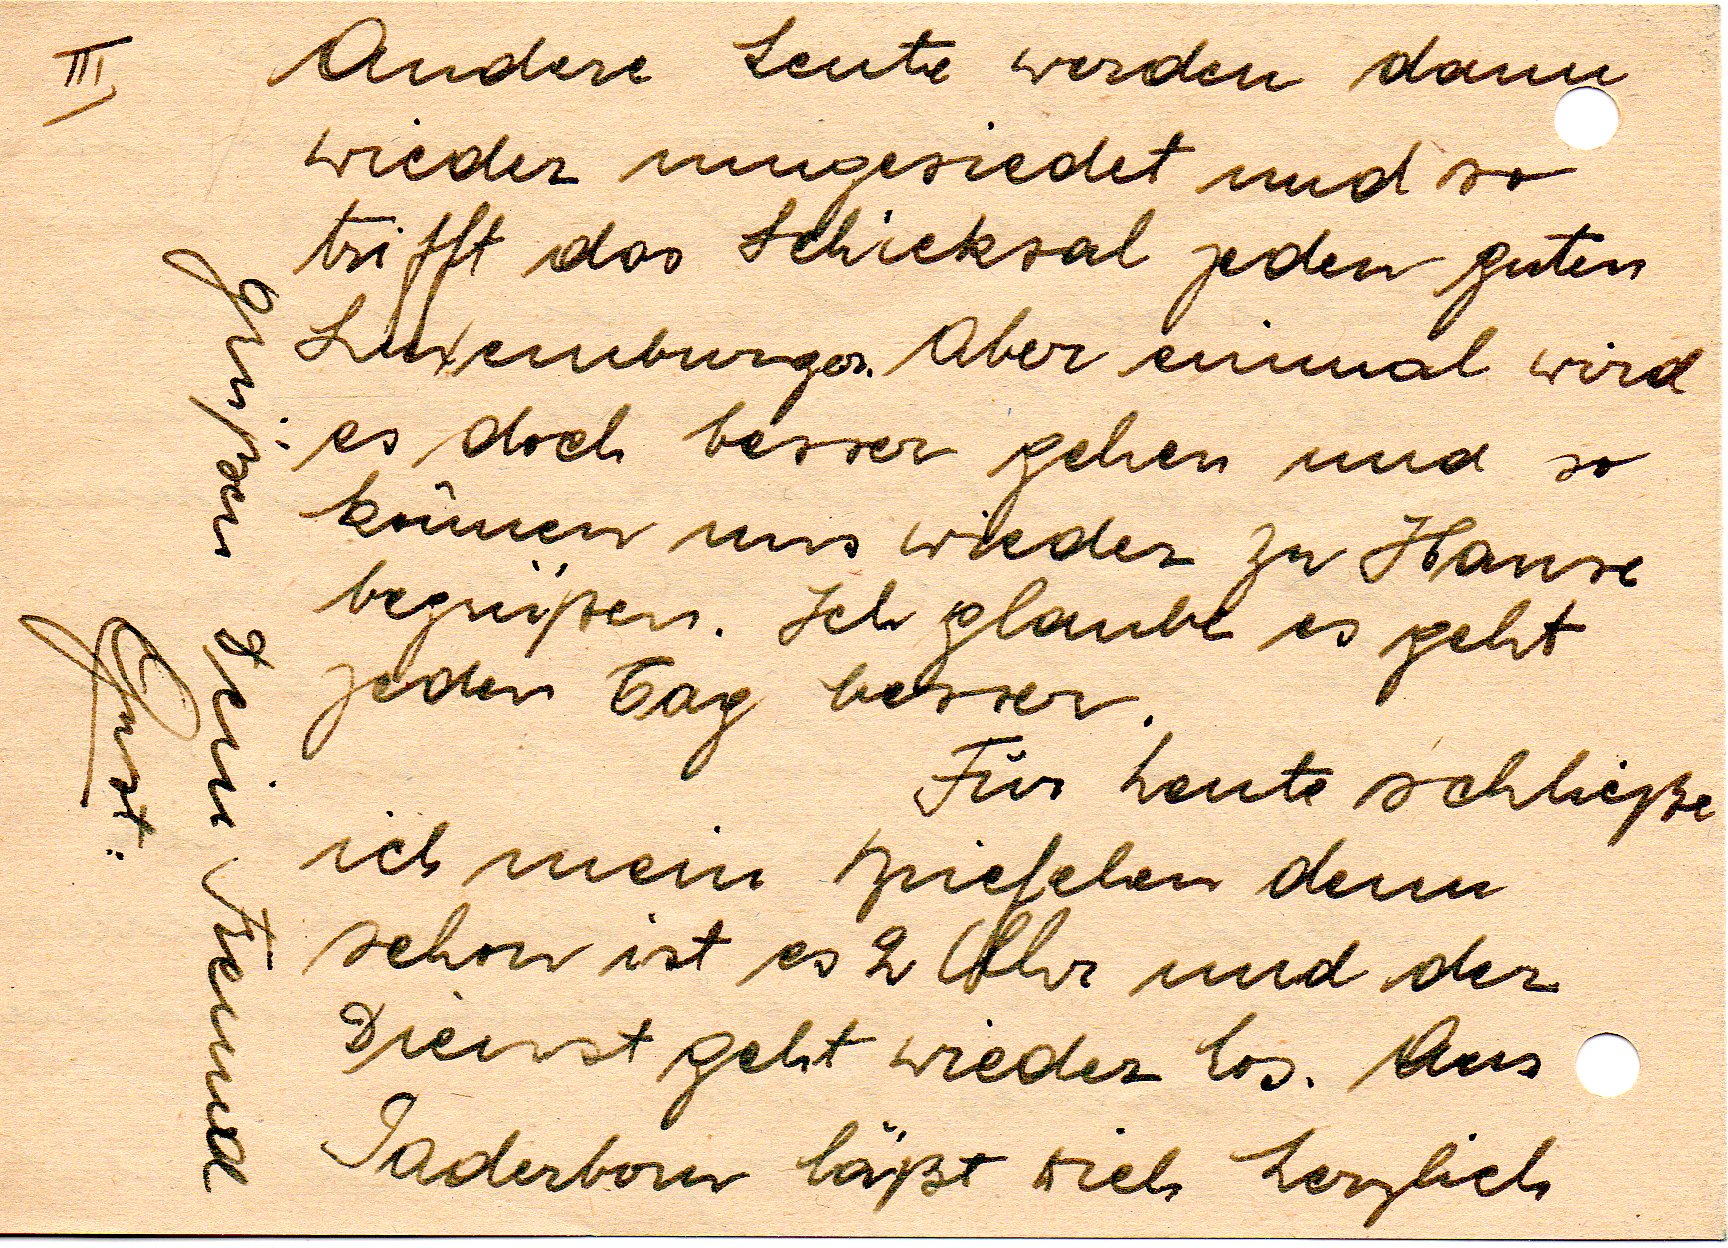 III
Andere Leute werden dann
wieder umgesiedet und so
trifft das Schicksal jeden guten
Luxemburger. Aber einmal wird
es doch besser gehen und so
können uns wieder zu Hause
begrüßen. Ich glaube es geht
jeden Tag besser.
Für heute schließe
ich mein
denn
schon ist es 2 Uhr und der
Dienst geht wieder los. Aus
Paderborn läßt dich herzlich
grüßen dein Freund